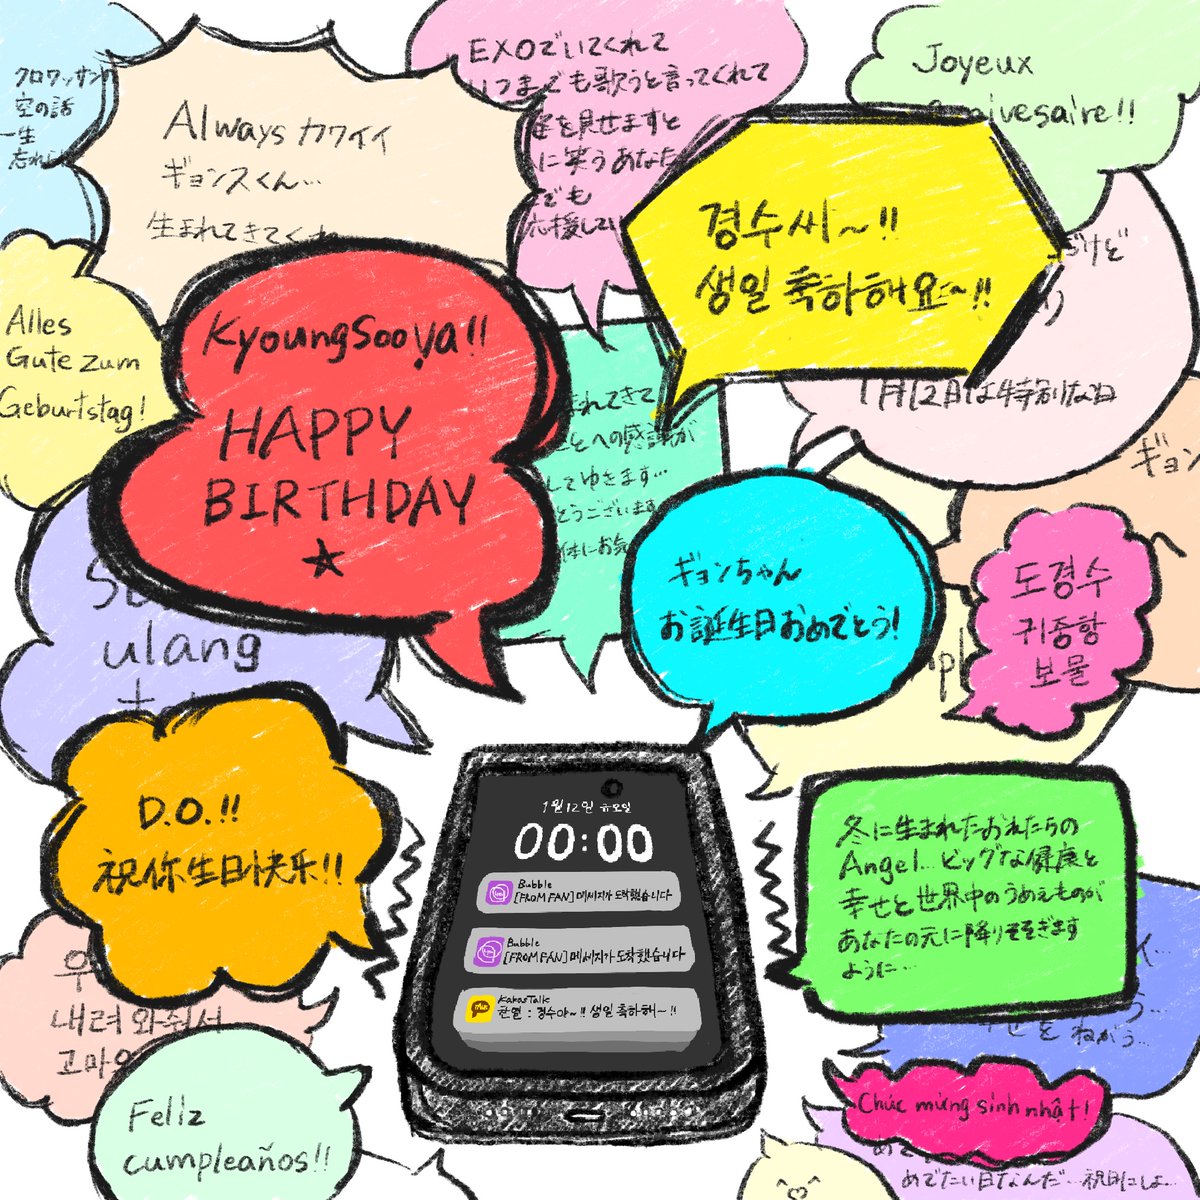 クロワッサン
空の話
一生
忘れら
Always カワイイ
ギョンスくん…
生まれてきてくれ
EXOでいてくれて
いつまでも歌うと言ってくれて
を見せますと
に笑うあなた
でも
応援してい
Joyeux
ivesaire!!
경수씨~!!
생일 축하해요~!!
だけど
1月12日は特別な日
Alles
Gute zum
Geburtstag!
KyoungSoo ya!!
HAPPY
BIRTHDAY
☆
まれてきて
ことへの感謝が
してゆきます…
とうございます
体にお気
ギョンちゃん
お誕生日おめでとう!
ギョ
へ
도경수
귀중항
보물
ulang
D.O.!!
祝你生日快乐!!
1월12일 금요일
00:00
Bubble
[FROM FAN] 메세지가 도착했습니다
Bubble
[FROM FAN] 메세지가 도착했습니다
KakaoTalk
찬열 : 경수야~!! 생일 축하해~!!
冬に生まれたおれたちの
Angel…ビッグな健康と
幸せと世界中のうめえものが
あなたの元に降りそそぎます
ように…
우
내려와줘서
고마
をねがう…
Feliz
cumpleaños!!
Chúc mừng sinh nhật!
めでたい日なんだ…祝日にしよ…